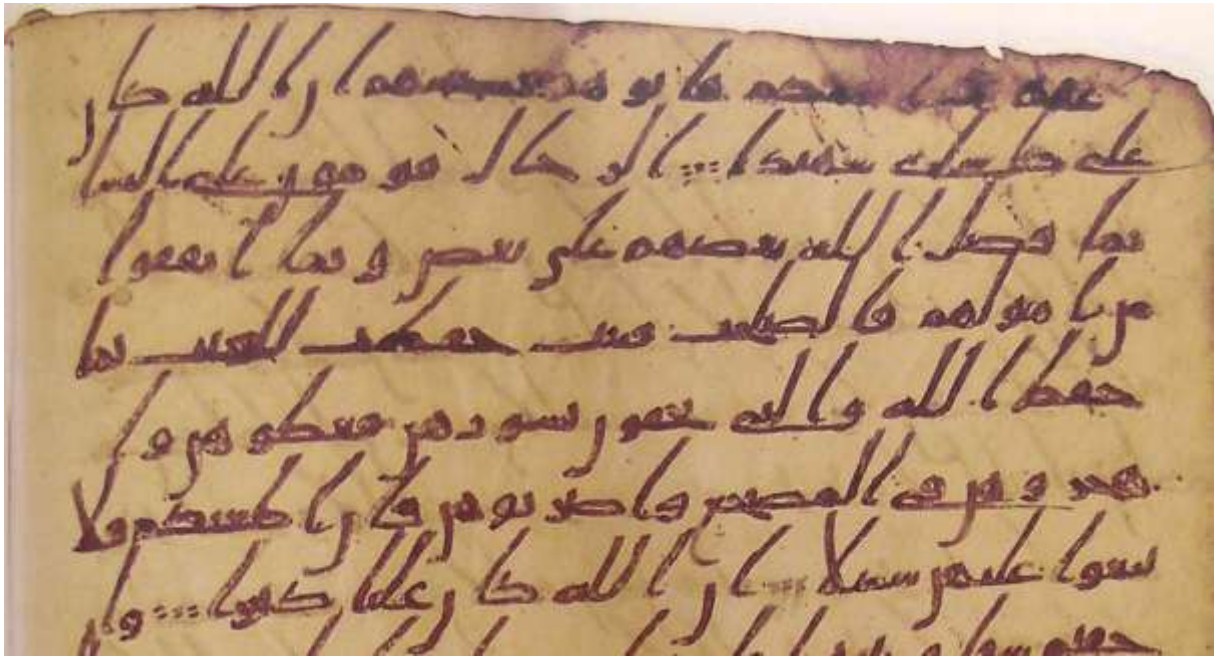 عقدت ايمنكم فاتوهم نصيبهم ان الله كان
على كل شىء شهيدا الرجال قومون على النسا
بما فضل الله بعضهم على بعض وبما انفقوا
من امولهم فالصلحت قنتت حفظت للغيب بما
حفظ الله والتى تخفون نشوزهن فعظوهن وا
هجروهن فى المضجع واضربوهن فان اطعنكم فلا
تبغوا عليهن سبيلا ان الله كان عليا كبيرا وان
خفتم شقاق